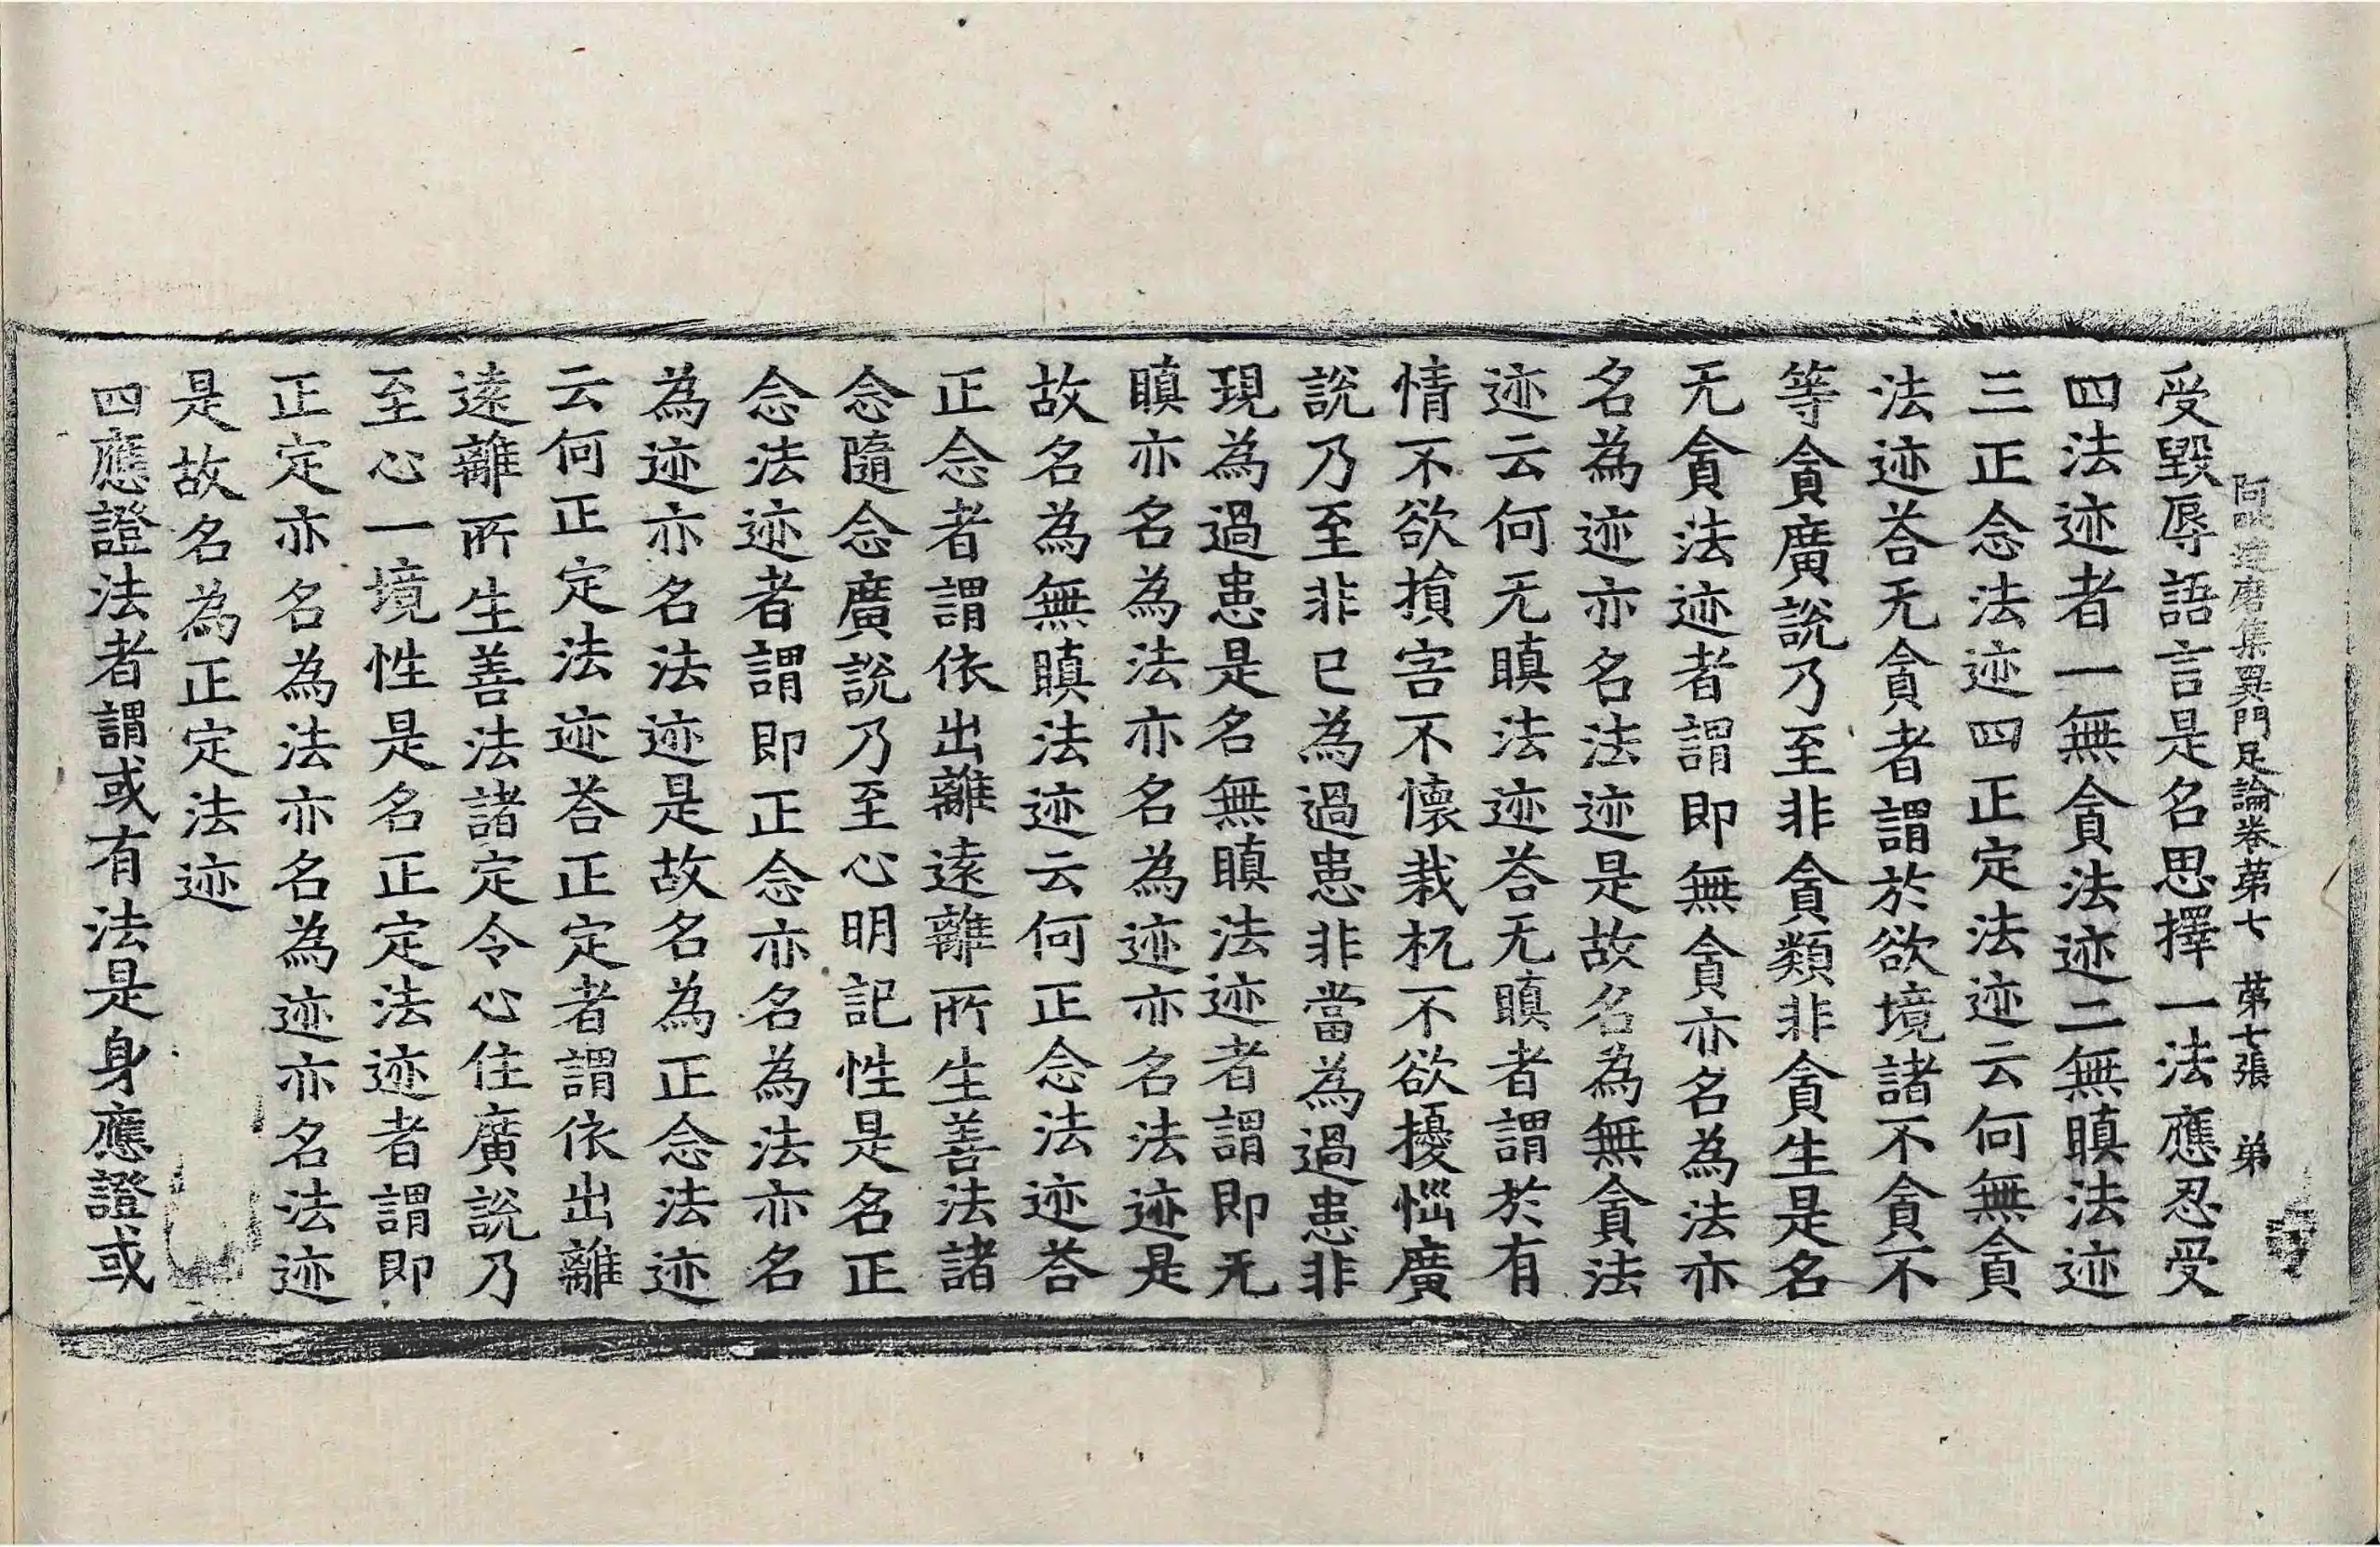 阿毗達磨集異門足論卷苐七 苐七張 弟
受毀辱語言是名思擇一法應忍受
四法迹者一無貪法迹二無瞋法迹
三正念法迹四正定法迹云何無貪
法迹荅无貪者謂於欲境諸不貪不
等貪廣說乃至非貪類非貪生是名
无貪法迹者謂即無貪亦名為法亦
名為迹亦名法迹是故名為無貪法
迹云何无瞋法迹荅无瞋者謂於有
情不欲損害不懷栽杌不欲擾惱廣
說乃至非已為過患非當為過患非
現為過患是名無瞋法迹者謂即无
瞋亦名為法亦名為迹亦名法迹是
故名為無瞋法迹云何正念法迹荅
正念者謂依出離遠離所生善法諸
念隨念廣說乃至心明記性是名正
念法迹者謂即正念亦名為法亦名
為迹亦名法迹是故名為正念法迹
云何正定法迹荅正定者謂依出離
遠離所生善法諸定令心住廣說乃
至心一境性是名正定法迹者謂即
正定亦名為法亦名為迹亦名法迹
是故名為正定法迹
四應證法者謂或有法是身應證或